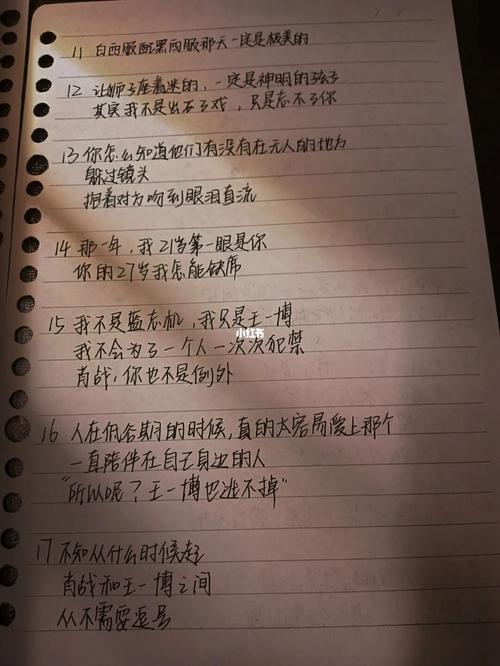 11 白西服配黑西服那天一定是极美的
12 让狮子座着迷的，一定是神明的孩子
其实我不是出不了戏，只是忘不了你
13 你怎么知道他们有没有在无人的地方
躲过镜头
抱着对方吻到眼泪直流
14 那一年，我21岁第一眼是你
你的27岁我怎能缺席
15 我不是蓝忘机，我只是王一博
小红书
我不会为了一个人一次次犯禁
肖战，你也不是例外
16 人在低谷期的时候，真的太容易爱上那个
一直陪伴在自己身边的人
"所以呢？王一博也逃不掉"
17 不知从什么时候起
肖战和王一博之间
从不需要逗号